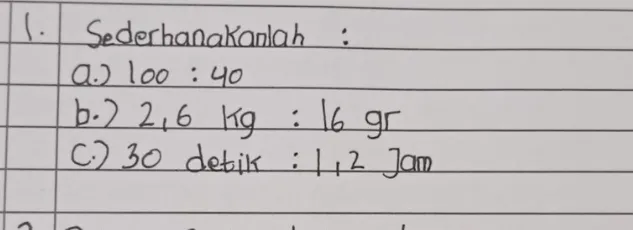 1. Sederhanakanlah :
a.) 100 : 40
b.) 2,6 kg : 16 gr
c.) 30 detik : 1,2 Jam